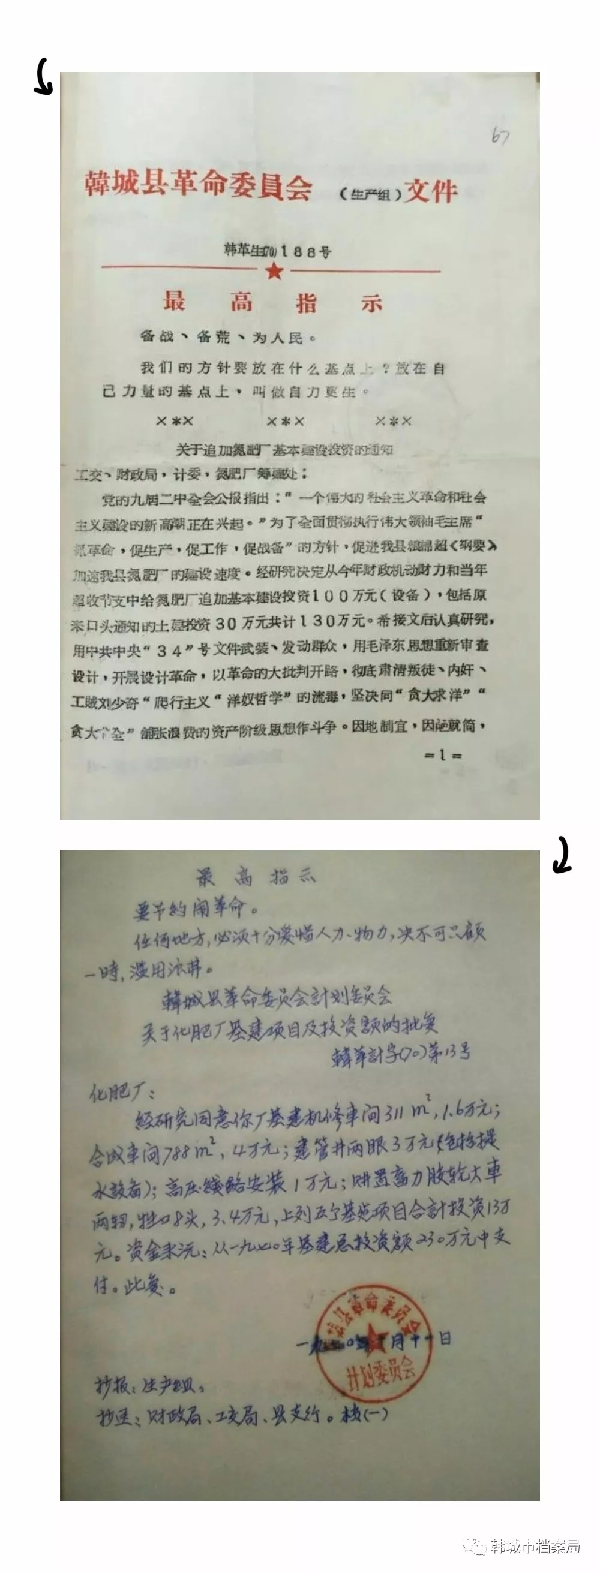 67
韓城县革命委員会（生产组）文件
韩革生(70)188号
最高指示
备战、备荒、为人民。
我们的方针要放在什么基点上？放在自
己力量的基点上、叫做自力更生。
×*× ×*× ×*×
关于追加氮肥厂基本建设投资的通知
工交、财政局，计委，氮肥厂筹建处：
党的九届二中全会公报指出：“一个伟大的社会主义革命和社会
主义建设的新高潮正在兴起。”为了全面贯彻执行伟大领袖毛主席“
抓革命，促生产，促工作，促战备”的方针，促进我县粮棉超《纲要》
加速我县氮肥厂的建设速度。经研究决定从今年财政机动财力和当年
超收节支中给氮肥厂追加基本建设投资100万元（设备），包括原
来口头通知的土建投资30万元共计130万元。希接文后认真研究，
用中共中央“34”号文件武装、发动群众，用毛泽东思想重新审查
设计，开展设计革命，以革命的大批判开路，彻底肃清叛徒、内奸、
工贼刘少奇“爬行主义”“洋奴哲学”的流毒，坚决同“贪大求洋”“
贪大求全”铺张浪费的资产阶级思想作斗争。因地制宜，因陋就简，
=1=
最高指示
要节约闹革命。
任何地方，必须十分爱惜人力、物力，决不可只顾
一時，滥用浪費。
韓城县革命委员会計划委员会
关于化肥厂基建项目及投资额的批复
韓革計字(70)第13号
化肥厂：
经研究同意你厂基建机修車间311m²，1.6万元；
合成車间788m²，4万元；建管井两眼3万元（包括提
水設备）；高压綫路安装1万元；購置畜力胶轮大車
两辆，牲口8头，3.4万元，上列五个基建项目合計投资13万
元。资金来沅：从一九七〇年基建总投资额230万元中支
付。此复。
一九七〇年 月十一日
韩城县革命委员会
计划委员会
抄报：生产组。
抄送：财政局、工交局、县支行。 档(一)
韩城市档案局